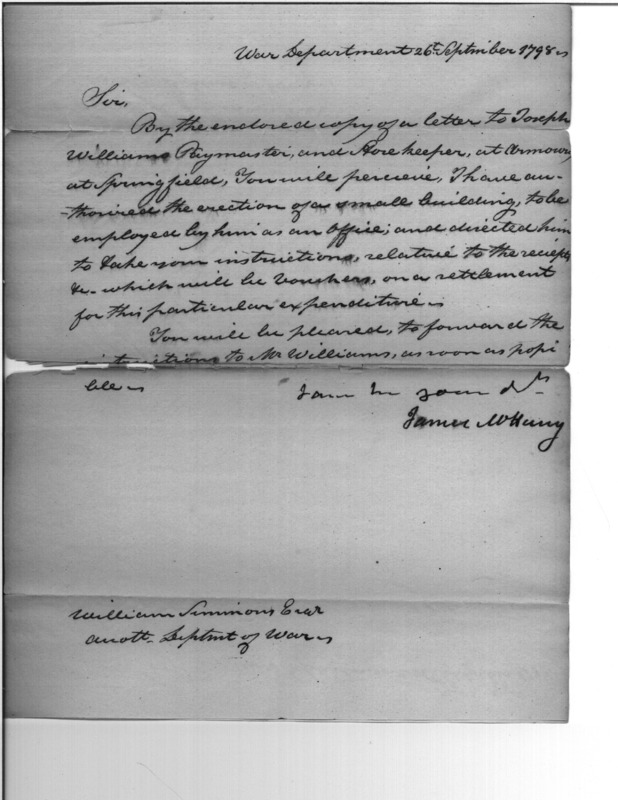 War Department 26t September 1798
Sir,
By the enclosed copy of a letter to Joseph
Williams Paymaster, and Storekeeper, at Armoury
at Springfield, You will percieve, I have au-
-thorized the erection of a small building, to be
employed by him as an Office; and directed him
to take your instructions, relative to the reciepts
&c. which will be vouchers, on a settlement
for this particular expenditure
You will be pleased, to forward the
instructions to Mr Williams, as soon as possi
ble
I am Sr your
James McHenry
William Simmons Esqr
Accott. Deptmt of War